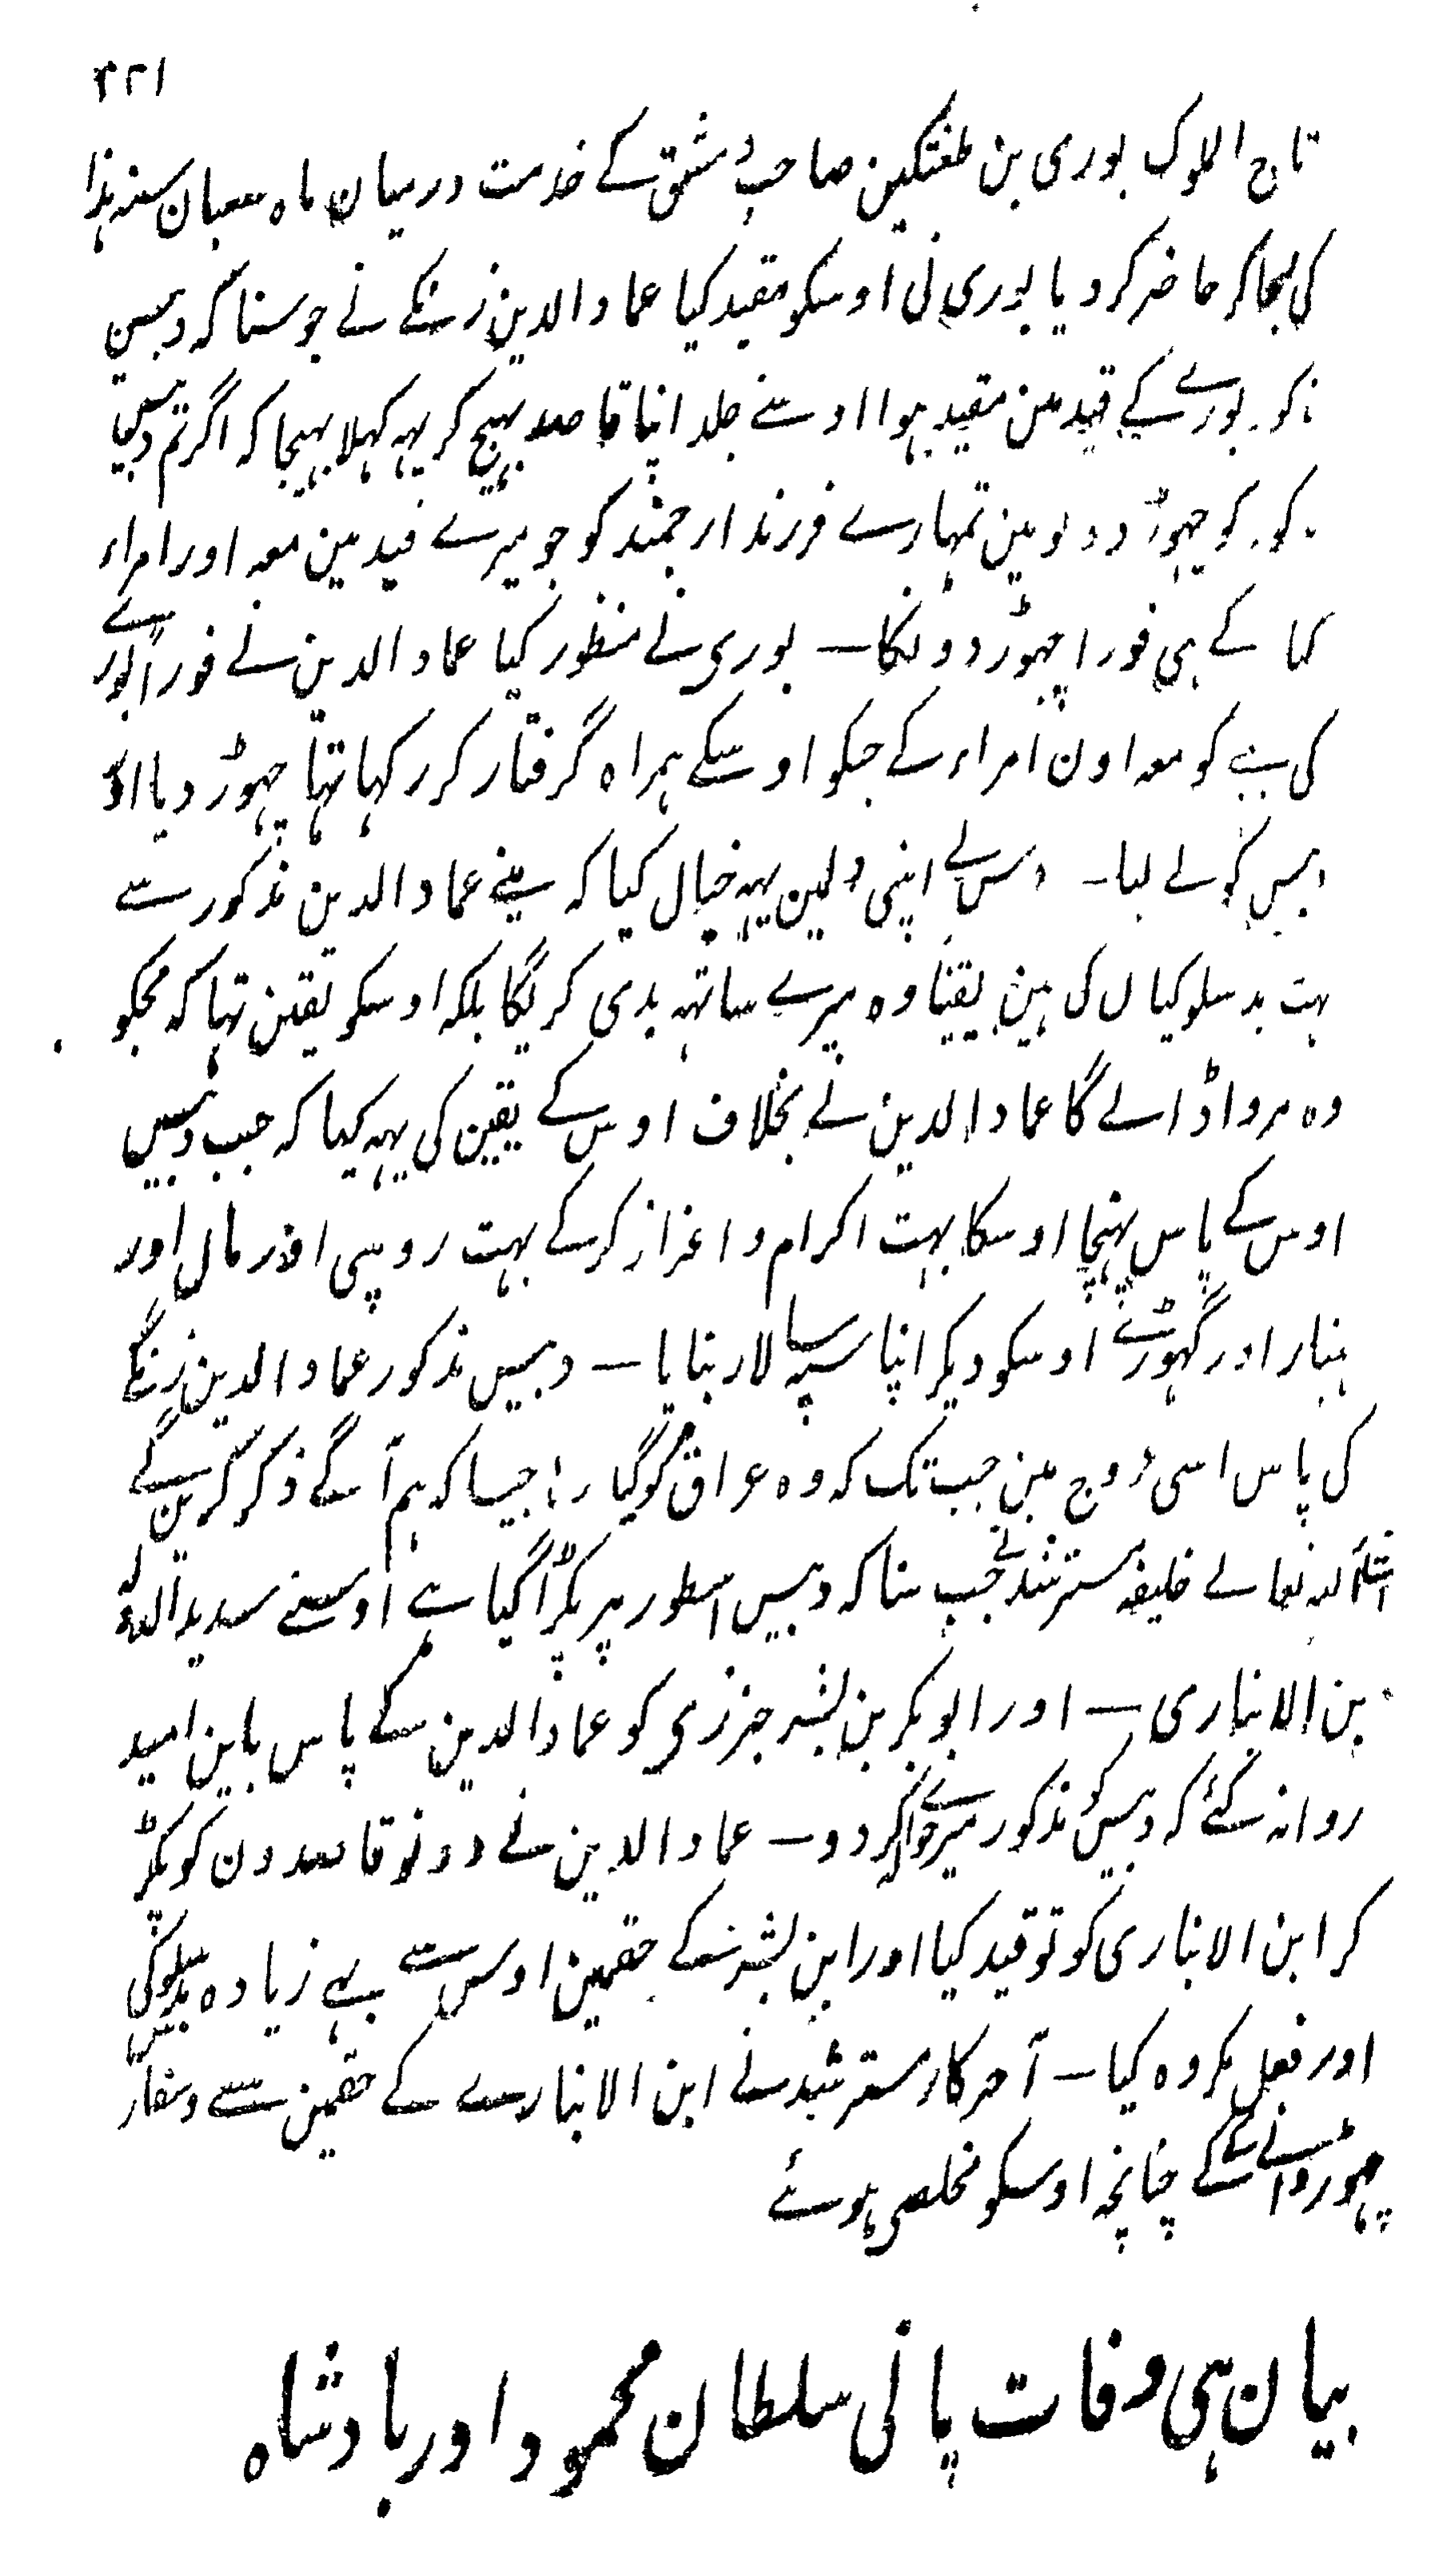 ۴۲۱
تاج الملوک بوری بن طغتکین صاحب دمشق کے خدمت درمیان ماہ شعبان سنہ ہذا
کی لیجاکر حاضر کر دیا بوری نی اوسکو مقید کیا عماد الدین زنگے نے جو سنا کہ دبیس
مذکور بورے کے قید مین مقید ہوا اوسنے جلد اپنا قاصد بہیج کر یہہ کہلا بہیجا کہ اگر تم دبیس
مذکور کو چہوڑ دو تو مین تمہارے فرزند ارجمند کو جو میرے قید مین معہ اور امراء
کے ہی فورا چہوڑ دونگا — بوری نے منظور کیا عماد الدین نے فوراً بورے
کی بیٹے کو معہ اون امراء کے جنکو اوسکے ہمراہ گرفتار کر رکہا تہا چہوڑ دیا اور
دبیس کو لے لیا — دبیس نے اپنی دلمین یہہ خیال کیا کہ مینے عماد الدین مذکور سے
بہت بد سلوکیاں کی ہین یقیناً وہ میرے ساتہہ بدی کریگا بلکہ اوسکو یقین تہا کہ مجکو
وہ مروا ڈالے گا عماد الدین نے بخلاف اوس کے یقین کی یہہ کیا کہ جب دبیس
اوس کے پاس پہنچا اوسکا بہت اکرام و اعزاز کر کے بہت روپی اور مال اور
ہتیار اور گہوڑے اوسکو دیکر اپنا سپہ سالار بنایا — دبیس مذکور عماد الدین زنگے
کی پاس اسی اوج مین جب تک کہ وہ عراق کو گیا رہا جیسا کہ ہم آگے ذکر کرین گے
انشاء اللہ تعالے خلیفہ مسترشد نے جب سنا کہ دبیس اسطور پر پکڑا گیا ہے اوسنے سدید الدولہ
بن الانباری — اور ابو بکر بن بشر جزری کو عماد الدین کے پاس باین امید
روانہ کئے کہ دبیس مذکور کو میرے حوالہ کر دو — عماد الدین نے دونو قاصدون کو پکڑ
کر ابن الانباری کو تو قید کیا اور ابن بشر کے حقمین اوس سے بہے زیادہ بدسلوکی
اور فعل مکروہ کیا — آخر کار مسترشد نے ابن الانبارے کے حقمین سے وسفارش
چہوڑوانے کے چنانچہ اوسکو مخلصی ہوئے
بیان ہی وفات پانی سلطان محمود اور بادشاہ